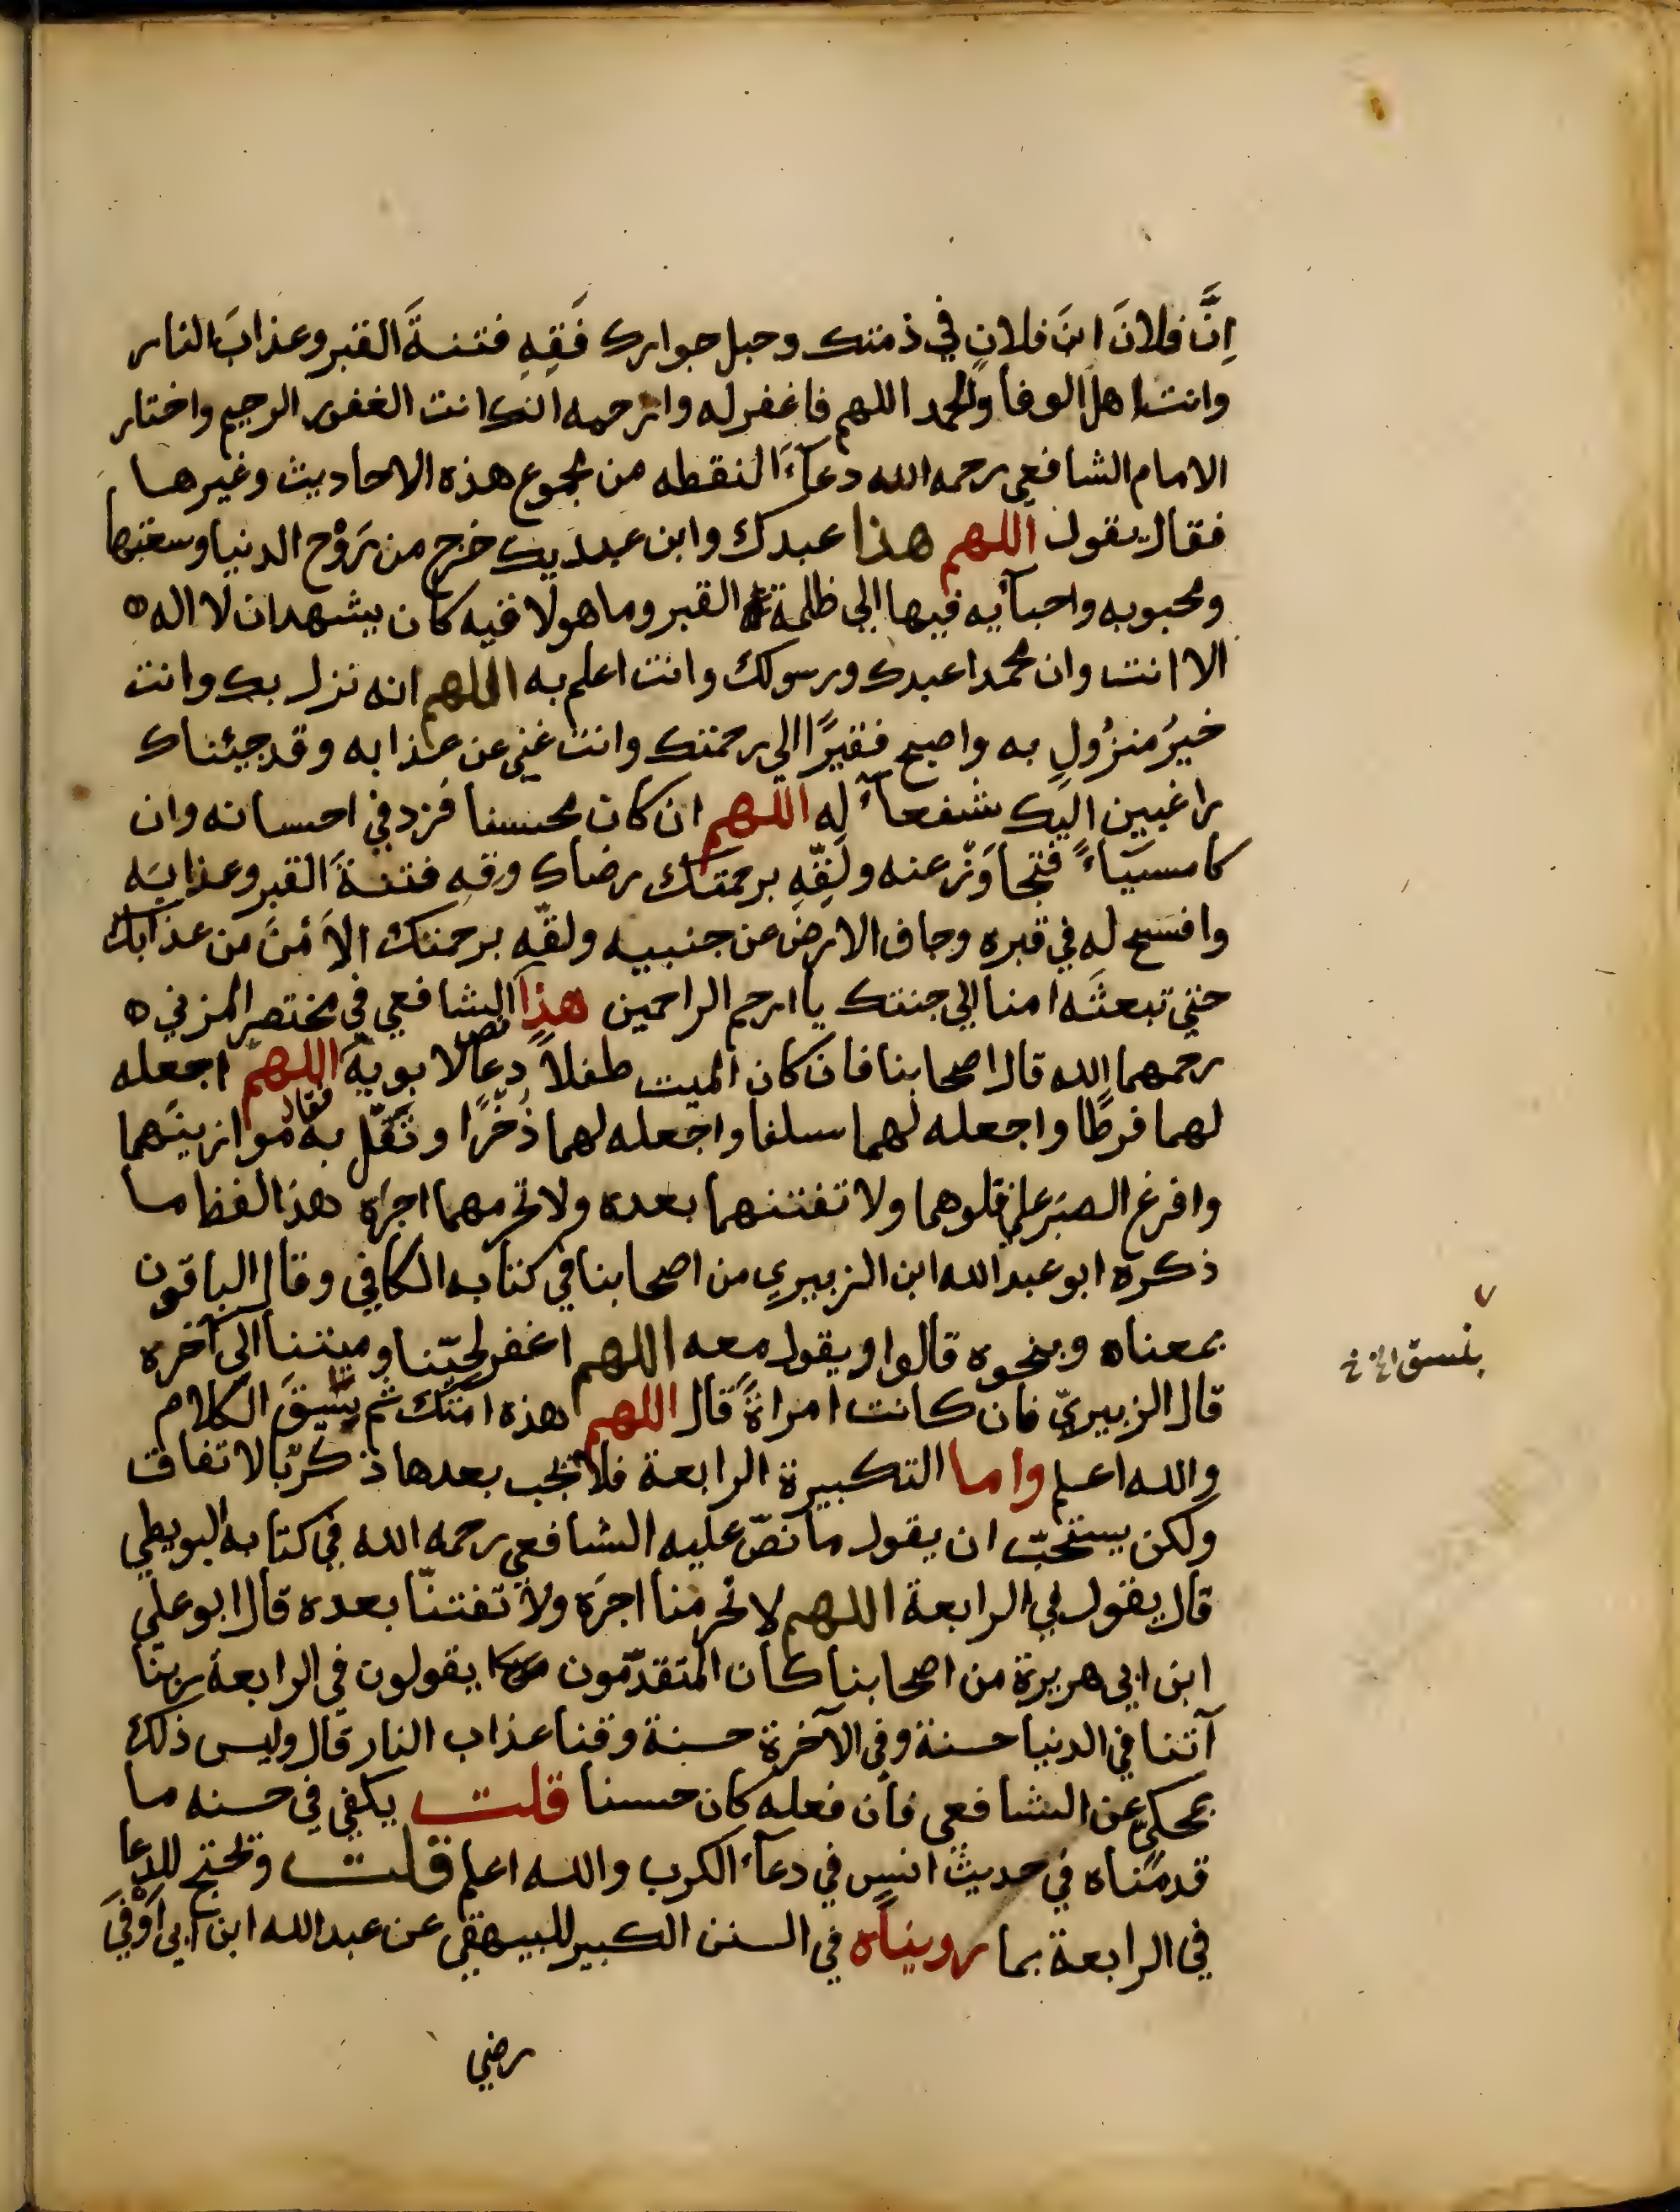 اِنَّ فلانَ ابنَ فلانٍ في ذمتك وحبل جوارك فَقِهِ فتنةَ القبر وعذابَ النار
وانت اهل الوفا والحمد اللهم فاغفر له وارحمه انك انت الغفور الرحيم واختار
الامام الشافعي رحمه الله دعآءً التقطه من مجموع هذه الاحاديث وغيرها
فقال يقول اللهم هذا عبدك وابن عبديك خرج من رَوْح الدنيا وسعتها
ومحبوبه واحبآيه فيها الي ظلمة القبر وما هو لا فيه كان يشهد ان لا اله ه
الا انت وان محمدا عبدك ورسولك وانت اعلم به اللهم انه نزل بك وانت
خيرُ منزُولٍ به واصبح فقيرًا الي رحمتك وانت غني عن عذابه وقد جيئناك
راغبين اليك شفعآءً له اللهم ان كان محسنا فزد في احسانه وان
كا مسيآءً فتجاوَزْ عنه ولَقِّهِ برحمتك رضاك وقه فتنةَ القبر وعذابَه
وافسح له في قبره وجاف الارض عن جنبيه ولقّه برحمتك الاَمْنَ من عذابك
حتي تبعثَه امنا الي جنتك يا ارحم الراحمين هذا نص الشافعي في مختصر المزني ه
رحمهما الله قال اصحابنا فان كان الميت طفلاً دعا لابويه فقال اللهم اجعله
لهما فرطًا واجعله لهما سلفا واجعله لهما ذُخْرًا وثَقّل به موازينَهما
وافرغ الصبَر علي قلوهما ولا تفتنهما بعده ولا تحرمهما اجرَه هذا لفظ ما
ذكره ابو عبد الله ابن الزبيري من اصحابنا في كتابه الكافي وقال الباقون
بمعناه وبنحوه قالوا ويقول معه اللهم اغفر لحيّنا وميتنا الي آخره
قال الزبيريّ فان كانت امراةً قال اللهم هذه امَتك ثم ينسق الكلام
والله اعلم واما التكبيرة الرابعة فلا تجب بعدها ذكر بالاتفاق
ولكن يستحبّ ان يقول ما نصّ عليه الشافعي رحمه الله في كتابه البويطي
قال يقول في الرابعة اللهم لا تحرمنا اجرَه ولا تفتنّا بعده قال ابو علي
ابن ابي هريرة من اصحابنا كان المتقدّمون يقولون في الرابعة ربنا
آتنا في الدنيا حسنة وفي الآخرة حسنة وقنا عذاب النار قال وليس ذلك
بمحكي عن الشافعي فان فعله كان حسنا قلت يكفي في حسنه ما
قدمناه في حديث انس في دعآء الكرب والله اعلم قلت ونحتج للدعا
في الرابعة بما رويناه في السنن الكبير للبيهقي عن عبد الله ابن ابي اَوْفَي
رضي